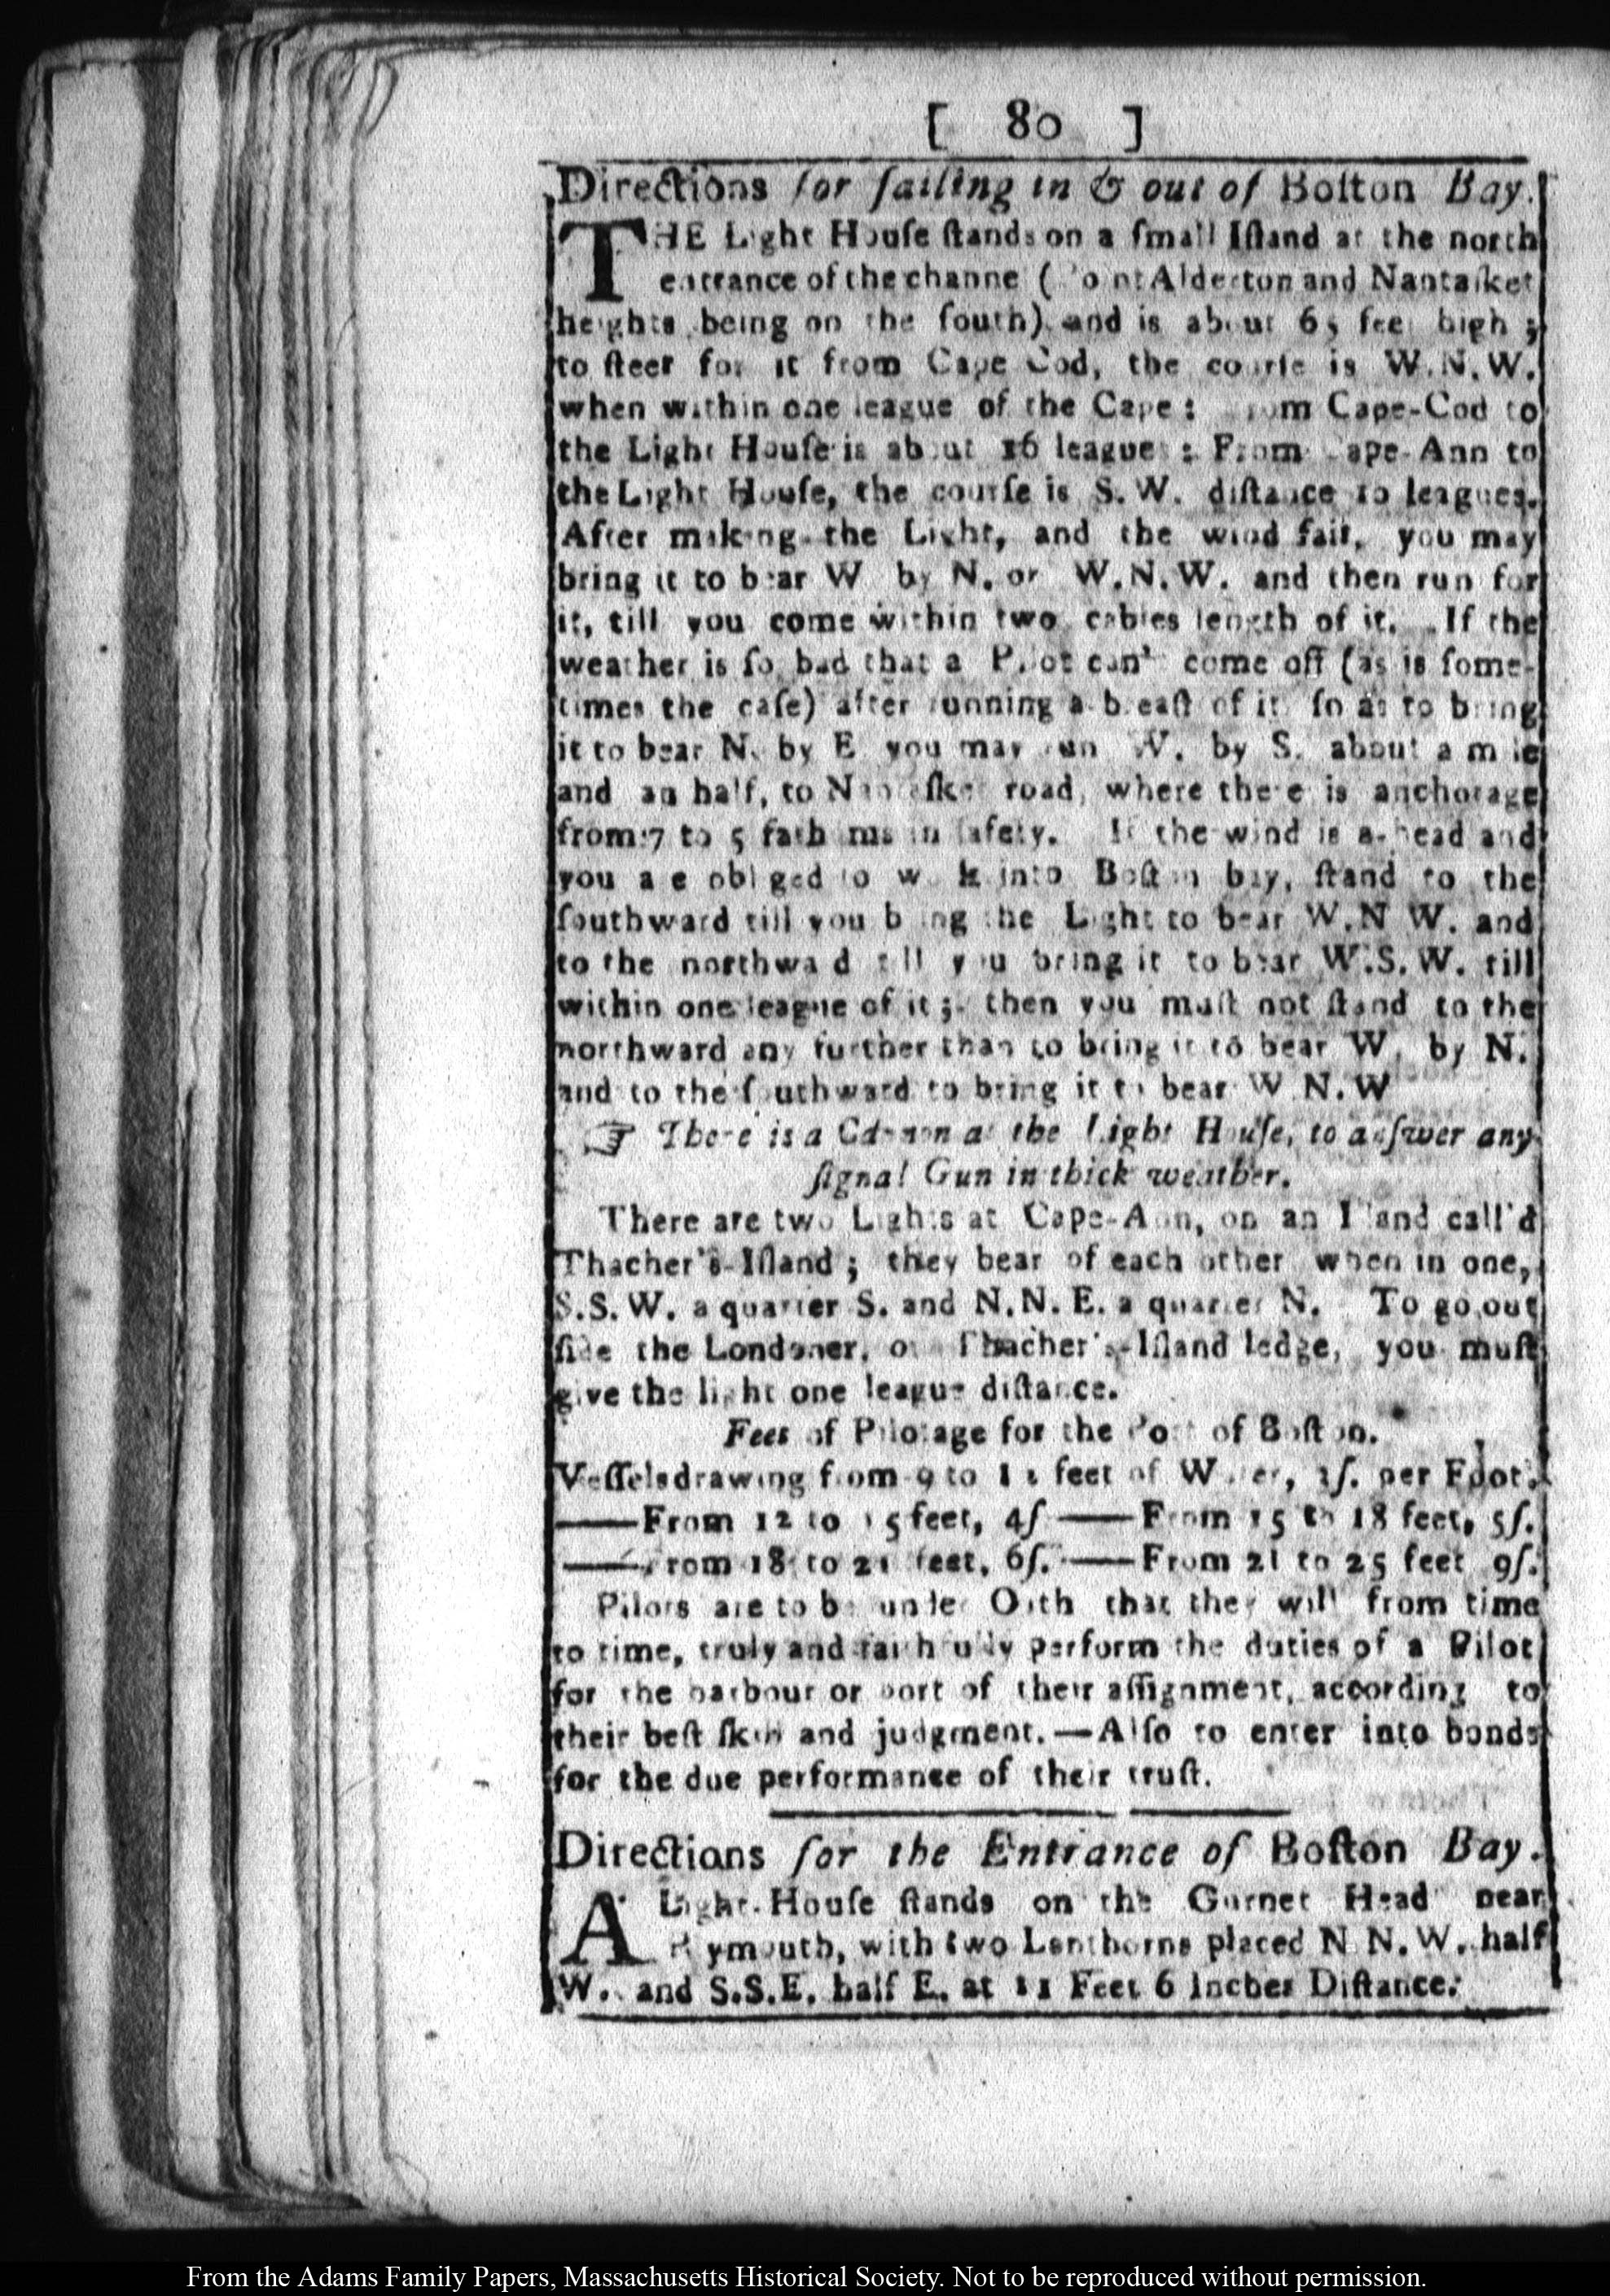 [ 80 ]
Directions for ſailing in & out of Boſton Bay.
THE Light Houſe ſtands on a ſmall Iſland at the north
entrance of the channel (Point Alderton and Nantaſket
heights being on the ſouth) and is about 65 feet high ;
to ſteer for it from Cape Cod, the courſe is W.N.W.
when within one league of the Cape : from Cape-Cod to
the Light Houſe is about 16 leagues : From Cape-Ann to
the Light Houſe, the courſe is S.W. diſtance 10 leagues.
After making the Light, and the wind fair, you may
bring it to bear W by N. or W.N.W. and then run for
it, till you come within two cables length of it. If the
weather is ſo bad that a Pilot can't come off (as is ſome-
times the caſe) after running a-breaſt of it ſo as to bring
it to bear N. by E you may run W. by S. about a mile
and an half, to Nantaſket road, where there is anchorage
from 7 to 5 fathoms in ſafety. If the wind is a-head and
you are obliged to work into Boſton bay, ſtand to the
ſouthward till you bring the Light to bear W.N W. and
to the northward till you bring it to bear W.S.W. till
within one league of it ; then you muſt not ſtand to the
northward any further than to bring it to bear W. by N.
and to the ſouthward to bring it to bear W N.W
☞ There is a Cannon at the Light Houſe, to anſwer any
ſignal Gun in thick weather.
There are two Lights at Cape-Ann, on an Iſland call'd
Thacher's-Iſland ; they bear of each other when in one,
S.S.W. a quarter S. and N.N.E. a quarter N. To go out
ſide the Londoner, or Thacher's-Iſland ledge, you muſt
give the light one league diſtance.
Fees of Pilotage for the Port of Boſton.
Veſſels drawing from 9 to 12 feet of Water, 3ſ. per Foot.
—From 12 to 15 feet, 4ſ —From 15 to 18 feet, 5ſ.
—From 18 to 21 feet, 6ſ. —From 21 to 25 feet 9ſ.
Pilots are to be under Oath that they will from time
to time, truly and faithfully perform the duties of a Pilot
for the harbour or port of their aſſignment, according to
their beſt ſkill and judgment.—Alſo to enter into bonds
for the due performance of their truſt.
Directions for the Entrance of Boſton Bay.
A Light-Houſe ſtands on the Gurnet Head near
Plymouth, with two Lanthorns placed N N.W. half
W. and S.S.E. half E. at 11 Feet 6 Inches Diſtance.
From the Adams Family Papers, Massachusetts Historical Society. Not to be reproduced without permission.